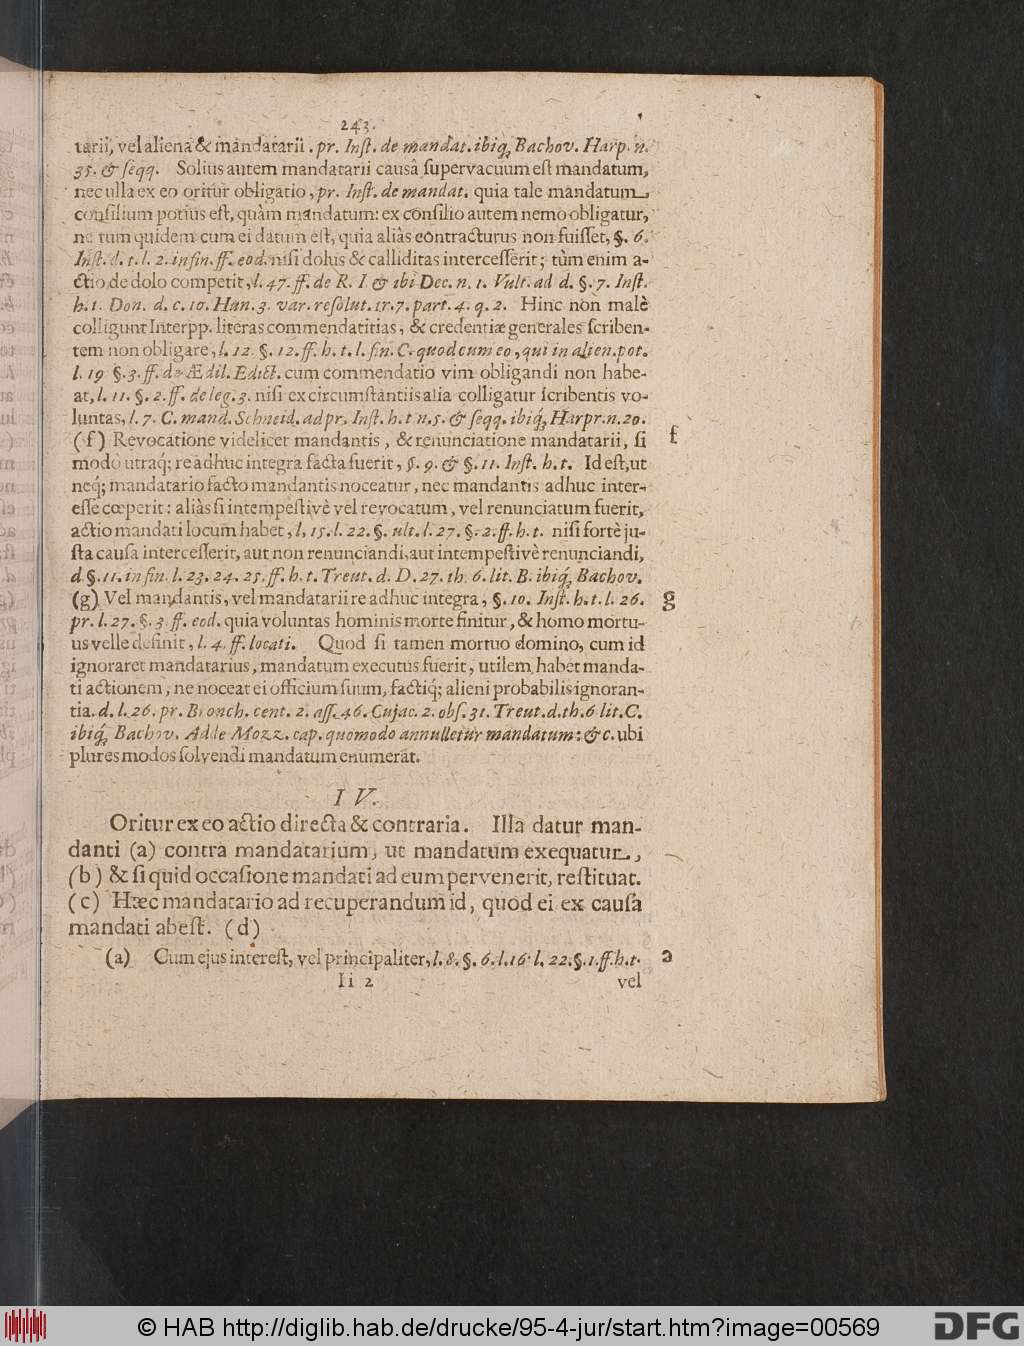 243.
tarii, vel aliena & mandatarii. pr. Inst. de mandat. ibiq; Bachov. Harp. n.
35. & seqq. Solius autem mandatarii causâ supervacuum est mandatum,
nec ulla ex eo oritur obligatio, pr. Inst. de mandat. quia tale mandatum
consilium potius est, quàm mandatum: ex consilio autem nemo obligatur,
ne tum quidem cum ei datum est, quia aliàs contracturus non fuisset, §. 6.
Inst. d. t. l. 2. in fin. ff. eod. nisi dolus & calliditas intercesserit; tùm enim a-
ctio de dolo competit, l. 47. ff. de R. I. & ibi Dec. n. 1. Vult. ad d. §. 7. Inst.
h. t. Don. d. c. 10. Han. 3. var. resolut. tr. 7. part. 4. q. 2. Hinc non malè
colligunt Interpp. literas commendatitias, & credentiæ generales scriben-
tem non obligare, l. 12. §. 12. ff. h. t. l. fin. C. quod cum eo, qui in alien. pot.
l. 19. §. 3. ff. de Ædil. Edict. cum commendatio vim obligandi non habe-
at, l. 11. §. 2. ff. de leg. 3. nisi ex circumstantiis alia colligatur scribentis vo-
luntas, l. 7. C. mand. Schneid. ad pr. Inst. h. t. n. 5. & seqq. ibiq; Harpr. n. 20.
(f) Revocatione videlicet mandantis, & renunciatione mandatarii, si f
modò utraq; re adhuc integra facta fuerit, §. 9. & §. 11. Inst. h. t. Id est, ut
neq; mandatario facto mandantis noceatur, nec mandantis adhuc inter-
esse cœperit: aliàs si intempestivè vel revocatum, vel renunciatum fuerit,
actio mandati locum habet, l. 15. l. 22. §. ult. l. 27. §. 2. ff. h. t. nisi fortè ju-
sta causa intercesserit, aut non renunciandi, aut intempestivè renunciandi,
d. §. 11. in fin. l. 23. 24. 25. ff. h. t. Treut. d. D. 27. th. 6. lit. B. ibiq; Bachov.
(g) Vel mandantis, vel mandatarii re adhuc integra, §. 10. Inst. h. t. l. 26. g
pr. l. 27. §. 3. ff. eod. quia voluntas hominis morte finitur, & homo mortu-
us velle definit, l. 4. ff. locati. Quod si tamen mortuo domino, cum id
ignoraret mandatarius, mandatum executus fuerit, utilem habet manda-
ti actionem, ne noceat ei officium suum, factiq; alieni probabilis ignoran-
tia. d. l. 26. pr. Bronch. cent. 2. ass. 46. Cujac. 2. obs. 31. Treut. d. th. 6 lit. C.
ibiq; Bachov. Adde Mozz. cap. quomodo annulletur mandatum: & c. ubi
plures modos solvendi mandatum enumerat.
IV.
Oritur ex eo actio directa & contraria. Illa datur man-
danti (a) contra mandatarium, ut mandatum exequatur,
(b) & si quid occasione mandati ad eum pervenerit, restituat.
(c) Hæc mandatario ad recuperandum id, quod ei ex causa
mandati abest. (d)
(a) Cum ejus interest, vel principaliter, l. 8. §. 6. l. 16. l. 22. §. 1. ff. h. t. a
Ii 2 vel
© HAB http://diglib.hab.de/drucke/95-4-jur/start.htm?image=00569 DFG